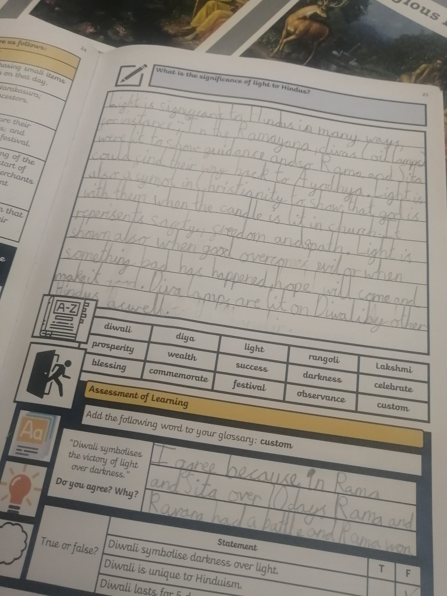 gious
re as follows:
hasing small items
on that day.
cestors.
ure their
and
festival.
ng of the
start of
erchants
nt.
that
ir
What is the significance of light to Hindus?
Light is significant to Hindus in many ways,
for instance, in the Ramayana divas (oil lamps)
were lit to show guidance and so Rama and Sita
could find their way back to Ayodhya. Light is
also a symbol in Christianity to show that god is
with them when the candle is lit in church. It
represents safety, freedom and path. Light is
shown also when good overcomes evil or when
something bad has happened hope will come and
make it good. Diva lamps are lit on Diwali by other
Hindus as well.
A-Z
diwali diya light rangoli Lakshmi
prosperity wealth success darkness celebrate
blessing commemorate festival observance custom
Assessment of Learning
Add the following word to your glossary: custom
Aa
"Diwali symbolises
the victory of light
over darkness."
Do you agree? Why?
I agree because in Rama
and Sita over 10 days Rama and
Ravana had a battle and Rama won
True or false?
Statement T F
Diwali symbolise darkness over light.
Diwali is unique to Hinduism.
Diwali lasts for 5 d